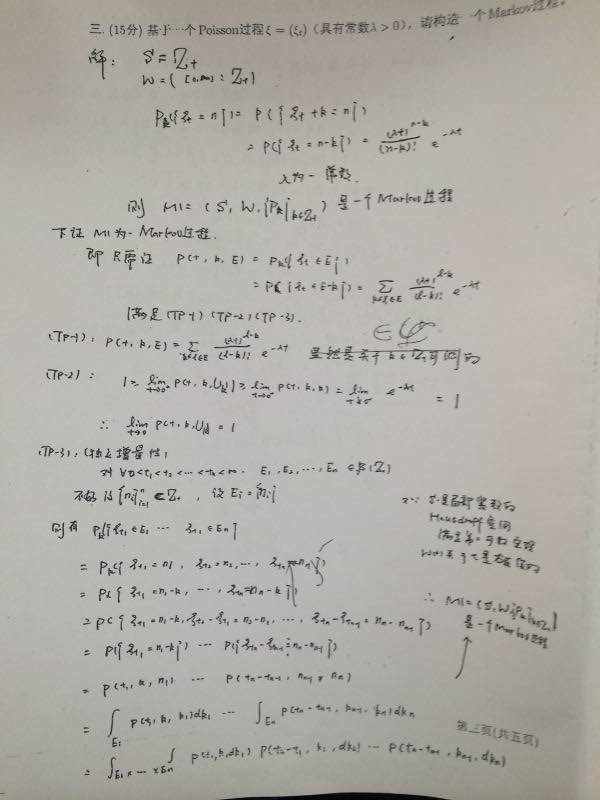 三. (15分) 基于一个Poisson过程ξ = (ξt)（具有常数λ > 0），请构造一个Markov过程.
解: S = Z+
W = ( [0,∞) : Z+)
Pk{ξt = n} = P({ξt + k = n})
= P({ξt = n-k}) = (λt)^{n-k}/(n-k)! e^{-λt}
λ为一常数.
则 M = (S, W, {Pk}k∈Z+) 是一个Markov过程
下证 M 为一Markov过程.
即只需证 P(t, k, E) = Pk{ξt ∈ E}
= P{ξt ∈ E-k} = Σ_{k≤l∈E} (λt)^{l-k}/(l-k)! e^{-λt}
满足(TP-1)(TP-2)(TP-3).
(TP-1): P(t, k, E) = Σ_{k≤l∈E} (λt)^{l-k}/(l-k)! e^{-λt} 显然是关于 k∈Z+可测的
∈ φ
(TP-2): 1 ≥ lim_{t→0+} P(t, k, Uk) ≥ lim_{t→0+} P(t, k, k) = lim_{t→0+} e^{-λt} = 1
∴ lim_{t→0} P(t, k, Uk) = 1
(TP-3): (独立增量性)
对 ∀ 0<t1<t2<…<tn<∞. E1, E2, …, En ∈ B(Z)
不妨设 {ni}_{i=1}^n ∈ Z+, 设 Ei = {ni}
则有 Pk{ξt1 ∈ E1 … ξtn ∈ En}
= Pk({ξt1 = n1, ξt2 = n2, …, ξtn = nn})
= P({ξt1 = n1-k, …, ξtn = nn-k})
= P({ξt1 = n1-k, ξt2-ξt1 = n2-n1, …, ξtn-ξtn-1 = nn-nn-1})
= P({ξt1 = n1-k}) … P({ξtn-ξtn-1 = nn-nn-1})
= P(t1, k, n1) … P(tn-tn-1, nn-1, nn)
= ∫_{E1} P(t1, k, k1)dk1 … ∫_{En} P(tn-tn-1, kn-1, kn)dkn
= ∫_{E1×…×En} ∫ P(t1, k, dk1) P(t2-t1, k1, dk2) … P(tn-tn-1, kn-1, dkn)
又∵ S是局部紧致的
Hausdorff空间
满足第二可数公理
W中关于t是右连续的
∴ M = (S, W, {Pk}k∈Z+)
是一个Markov过程
第三页(共五页)